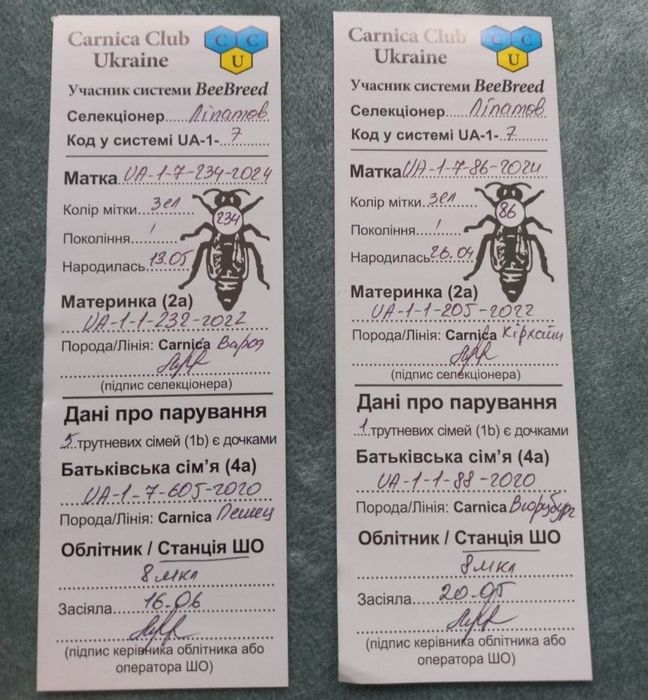 Carnica Club
Ukraine
C C
U
Учасник системи BeeBreed
Селекціонер Ліпатов
Код у системі UA-1- 7
Матка UA-1-7-234-2024
Колір мітки зел
234
Покоління 1
Народилась 13.05
Материнка (2а)
UA-1-1-232-2022
Порода/Лінія: Carnica
(підпис селекціонера)
Дані про парування
5 трутневих сімей (1b) є дочками
Батьківська сім'я (4а)
UA-1-7-605-2020
Порода/Лінія: Carnica Пешец
Облітник / Станція ШО
8мкл
Засіяла 16.06
(підпис керівника облітника або
оператора ШО)
Carnica Club
Ukraine
C C
U
Учасник системи BeeBreed
Селекціонер Ліпатов
Код у системі UA-1- 7
Матка UA-1-7-86-2024
Колір мітки зел
86
Покоління 1
Народилась 26.04
Материнка (2а)
UA-1-1-205-2022
Порода/Лінія: Carnica Кірхайн
(підпис селекціонера)
Дані про парування
1 трутневих сімей (1b) є дочками
Батьківська сім'я (4а)
UA-1-1-88-2020
Порода/Лінія: Carnica Вюрцбург
Облітник / Станція ШО
8мкл
Засіяла 20.05
(підпис керівника облітника або
оператора ШО)